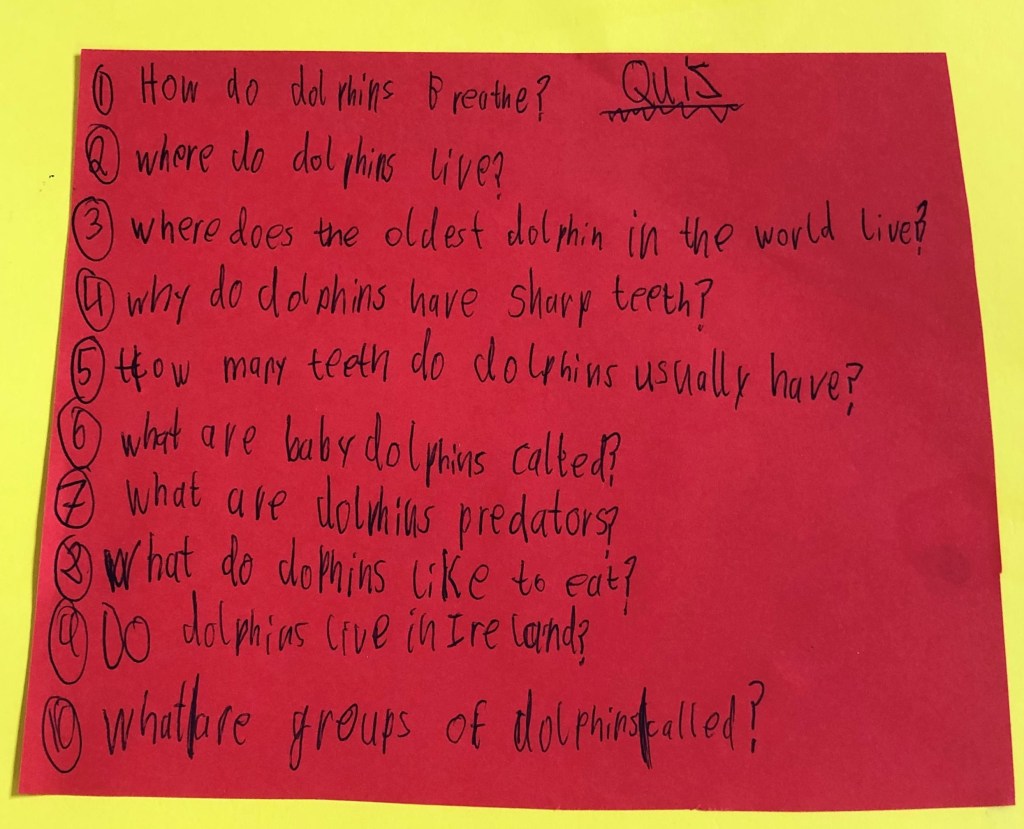 ① How do dolphins Breathe? QUIS
② where do dolphins live?
③ where does the oldest dolphin in the world live?
④ why do dolphins have sharp teeth?
⑤ How many teeth do dolphins usually have?
⑥ what are baby dolphins called?
⑦ what are dolphins predators?
⑧ What do dophins like to eat?
⑨ DO dolphins live in Ireland?
⑩ what are groups of dolphins called?